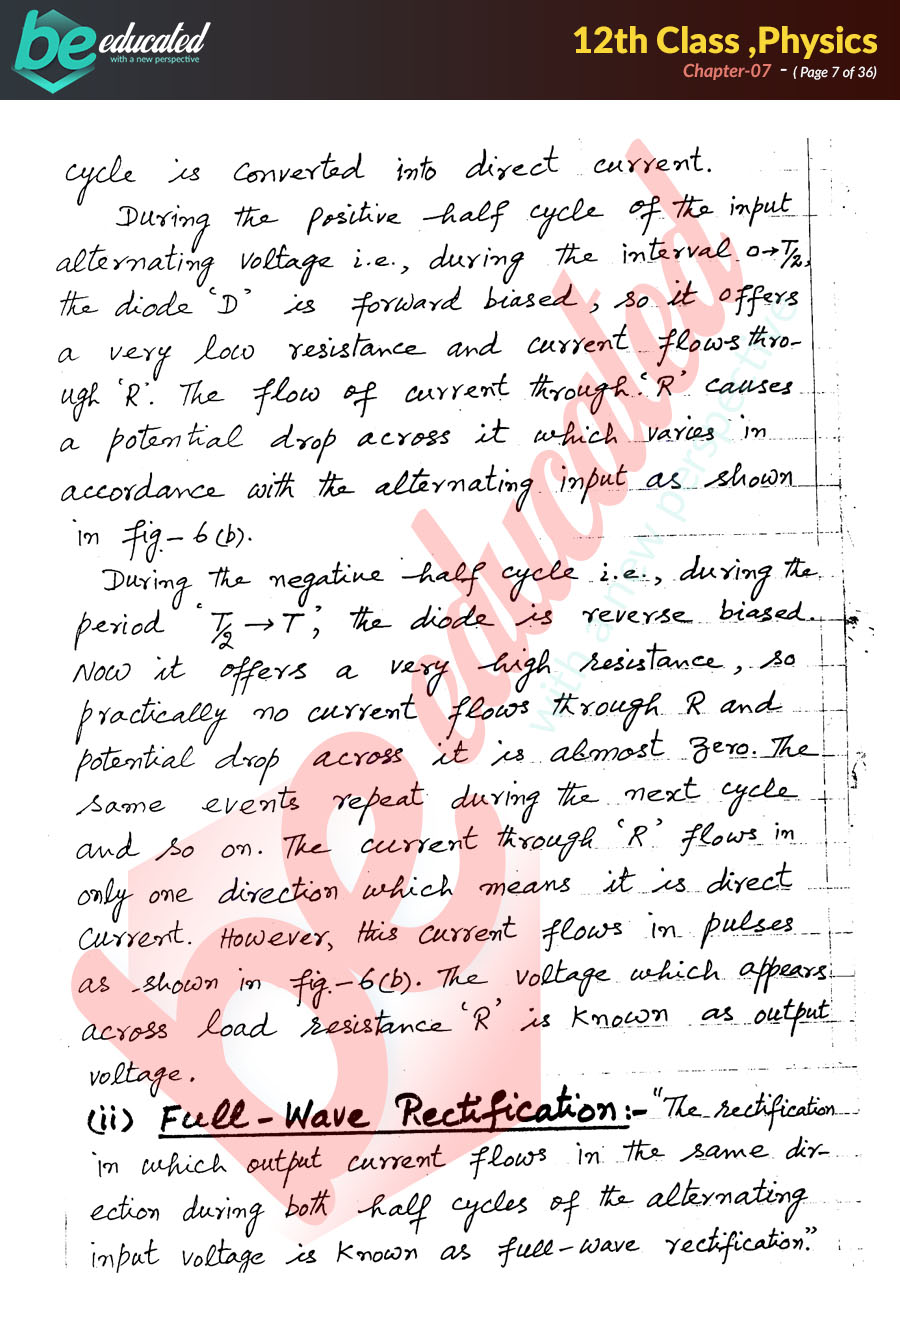 be educated
with a new perspective
12th Class ,Physics
Chapter-07 - ( Page 7 of 36)
cycle is converted into direct current.
During the positive half cycle of the input
alternating voltage i.e., during the interval 0→T/2,
the diode 'D' is forward biased, so it offers
a very low resistance and current flows thro-
ugh 'R'. The flow of current through 'R' causes
a potential drop across it which varies in
accordance with the alternating input as shown
in fig.-6(b).
During the negative half cycle i.e., during the
period 'T/2→T', the diode is reverse biased.
Now it offers a very high resistance, so
practically no current flows through R and
potential drop across it is almost zero. The
same events repeat during the next cycle
and so on. The current through 'R' flows in
only one direction which means it is direct
current. However, this current flows in pulses
as shown in fig.-6(b). The voltage which appears
across load resistance 'R' is known as output
voltage.
(ii) Full-Wave Rectification:- "The rectification
in which output current flows in the same dir-
ection during both half cycles of the alternating
input voltage is known as full-wave rectification."
be educated
with a new perspective